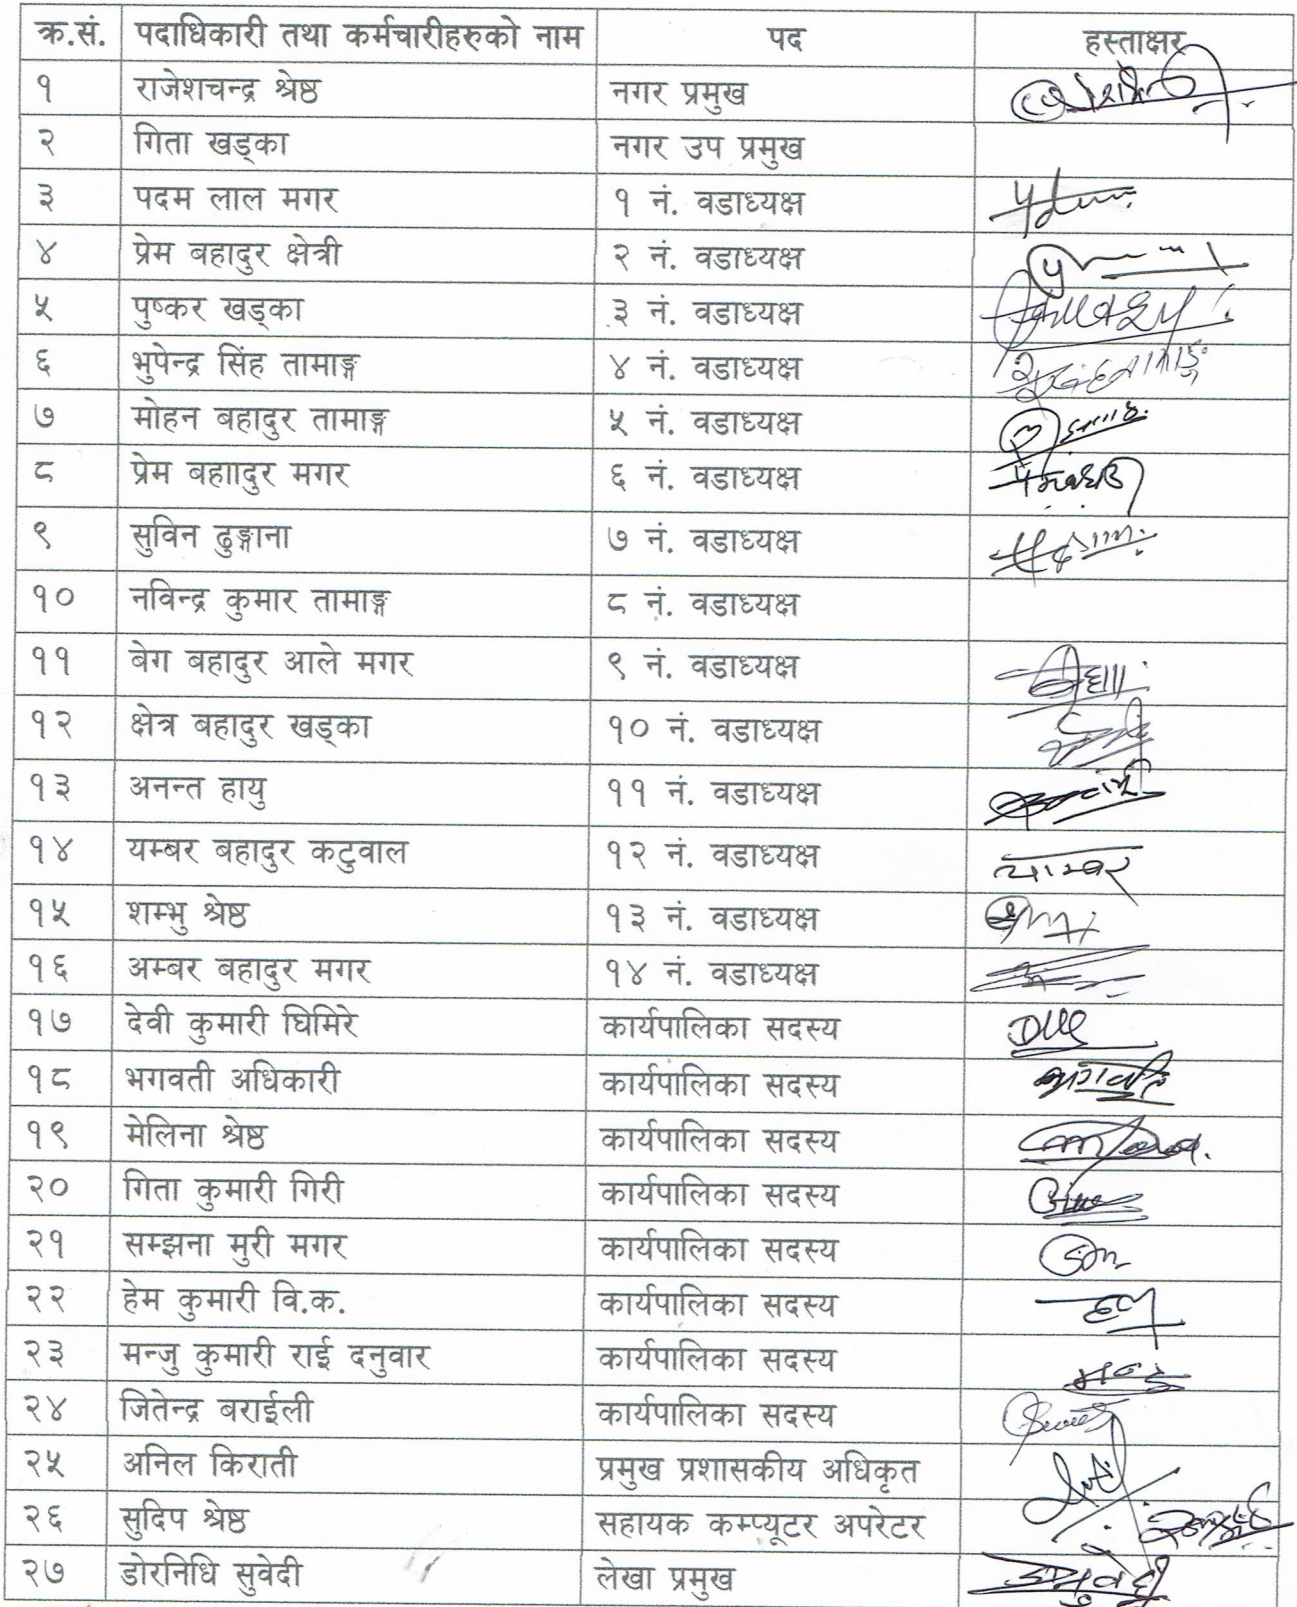 क्र.सं. पदाधिकारी तथा कर्मचारीहरुको नाम पद हस्ताक्षर
१ राजेशचन्द्र श्रेष्ठ नगर प्रमुख
२ गिता खड्का नगर उप प्रमुख
३ पदम लाल मगर १ नं. वडाध्यक्ष
४ प्रेम बहादुर क्षेत्री २ नं. वडाध्यक्ष
५ पुष्कर खड्का ३ नं. वडाध्यक्ष
६ भुपेन्द्र सिंह तामाङ्ग ४ नं. वडाध्यक्ष
७ मोहन बहादुर तामाङ्ग ५ नं. वडाध्यक्ष
८ प्रेम बहाादुर मगर ६ नं. वडाध्यक्ष
९ सुविन ढुङ्गाना ७ नं. वडाध्यक्ष
१० नविन्द्र कुमार तामाङ्ग ८ नं. वडाध्यक्ष
११ बेग बहादुर आले मगर ९ नं. वडाध्यक्ष
१२ क्षेत्र बहादुर खड्का १० नं. वडाध्यक्ष
१३ अनन्त हायु ११ नं. वडाध्यक्ष
१४ यम्बर बहादुर कटुवाल १२ नं. वडाध्यक्ष
१५ शम्भु श्रेष्ठ १३ नं. वडाध्यक्ष
१६ अम्बर बहादुर मगर १४ नं. वडाध्यक्ष
१७ देवी कुमारी घिमिरे कार्यपालिका सदस्य
१८ भगवती अधिकारी कार्यपालिका सदस्य
१९ मेलिना श्रेष्ठ कार्यपालिका सदस्य
२० गिता कुमारी गिरी कार्यपालिका सदस्य
२१ सम्झना मुरी मगर कार्यपालिका सदस्य
२२ हेम कुमारी वि.क. कार्यपालिका सदस्य
२३ मन्जु कुमारी राई दनुवार कार्यपालिका सदस्य
२४ जितेन्द्र बराईली कार्यपालिका सदस्य
२५ अनिल किराती प्रमुख प्रशासकीय अधिकृत
२६ सुदिप श्रेष्ठ सहायक कम्प्यूटर अपरेटर
२७ डोरनिधि सुवेदी लेखा प्रमुख